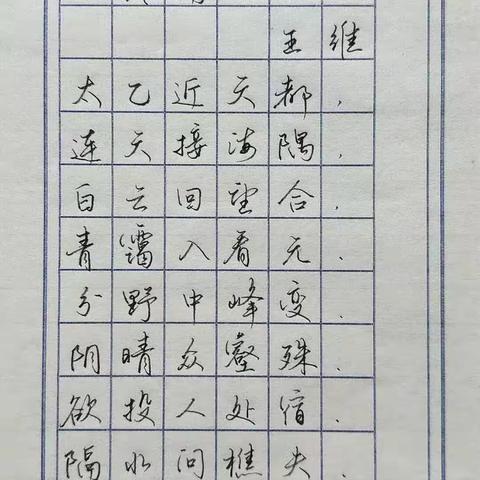 王维
太乙近天都,
连天接海隅.
白云回望合.
青霭入看无.
分野中峰变.
阴晴众壑殊.
欲投人处宿.
隔水问樵夫.